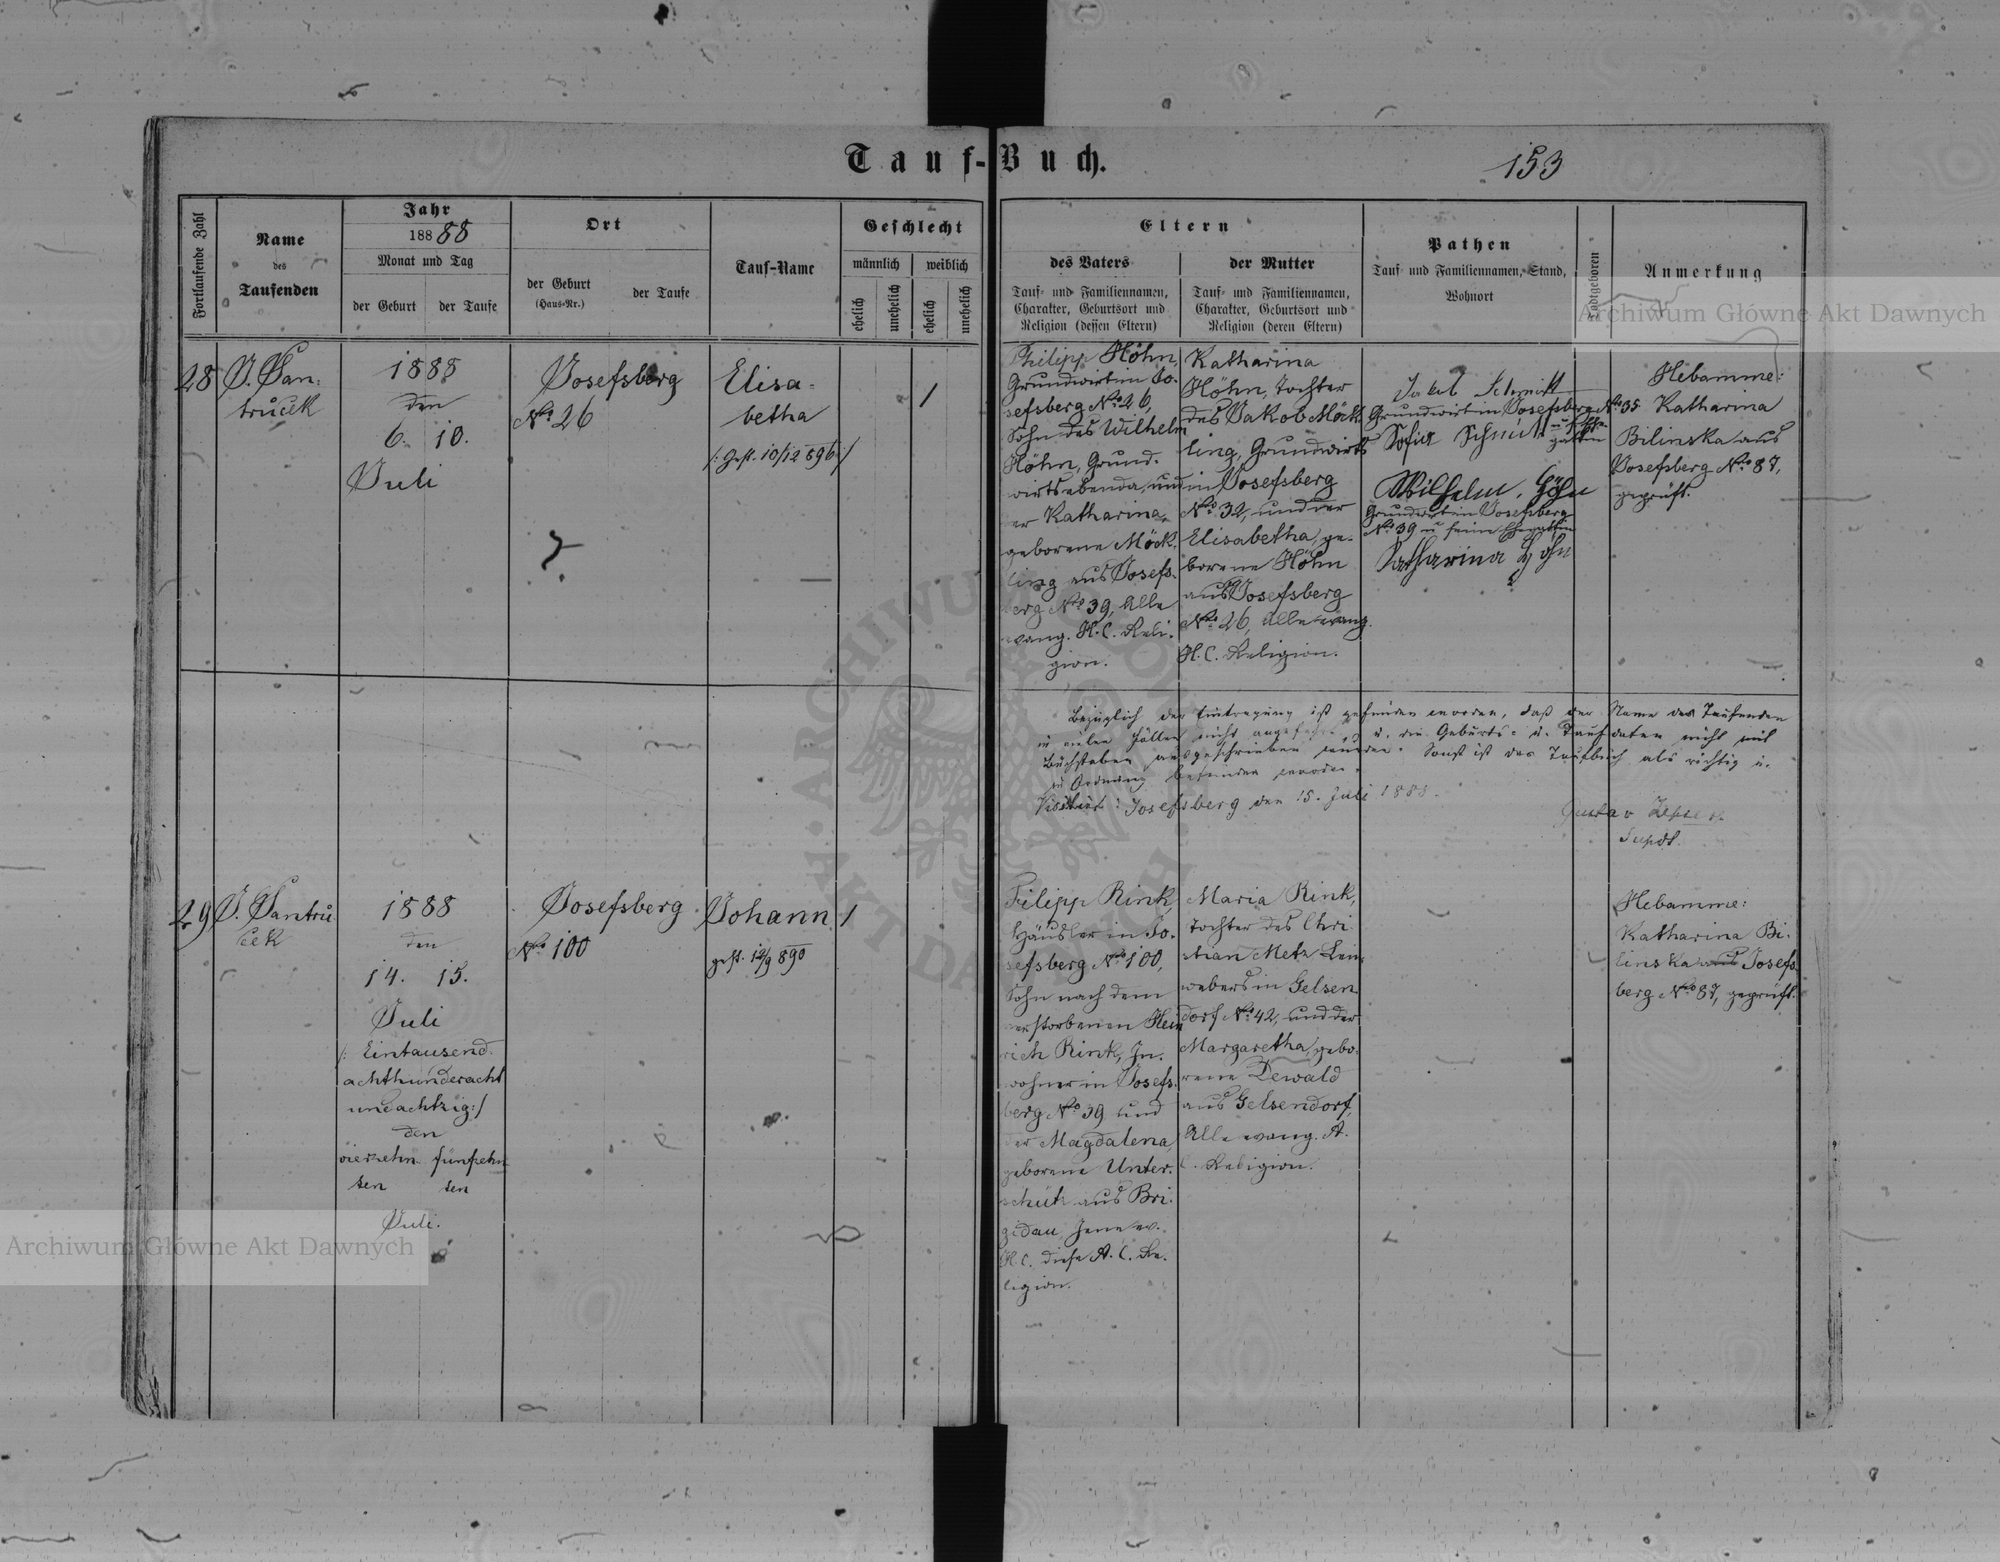 Tauf-Buch.
153
Fortlaufende Zahl
Name
des
Taufenden
Jahr
188 88
Monat und Tag
der Geburt
der Taufe
Ort
der Geburt
(Haus-Nr.)
der Taufe
Tauf-Name
Geschlecht
männlich
weiblich
ehelich
unehelich
ehelich
unehelich
Eltern
des Vaters
Tauf- und Familiennamen,
Charakter, Geburtsort und
Religion (dessen Eltern)
der Mutter
Tauf- und Familiennamen,
Charakter, Geburtsort und
Religion (deren Eltern)
Pathen
Tauf- und Familiennamen, Stand,
Wohnort
Anmerkung
28
J. Jan-
trůček
1888
den
6. 10.
Juli
Josefsberg
No 26
Elisa-
betha
/: Gest. 10/12 896 :/
1
Philipp Höhn,
Grundwirt in Jo-
sefsberg No 26,
Sohn des Wilhelm
Höhn, Grund-
wirts ebenda, und
der Katharina,
geborene Möck-
ling aus Josefs-
berg No 39, Alle
evang. H. C. Reli-
gion.
Katharina
Höhn, Tochter
des Jakob Möck-
ling, Grundwirts
in Josefsberg
No 32, und der
Elisabetha, ge-
borene Höhn
aus Josefsberg
No 26, Alle evang.
H. C. Religion.
Jakob Schmitt
Grundwirt in Josefsberg No 35
Sofia Schmitt
Wilhelm Höhn
Grundwirt in Josefsberg
No 39 u seine Ehegattin
Katharina Höhn
Hebamme:
Katharina
Bilinska aus
Josefsberg No 87,
geprüft.
Bezüglich der Eintragung ist gefunden worden, daß der Name des Taufenden
in vielen Fällen nicht angeführt u. die Geburts- u. Taufdaten nicht mit
Buchstaben ausgeschrieben wurden. Sonst ist das Taufbuch als richtig u.
in Ordnung befunden worden.
Visitirt: Josefsberg den 15. Juli 1888.
Gustav
Supdt.
29
J. Jantrů
ček
1888
den
14. 15.
Juli
/: Eintausend-
achthundertacht
undachtzig :/
den
vierzehn fünfzehn
ten ten
Juli.
Josefsberg
No 100
Johann
gest. 12/9 890
1
Filipp Rink,
Häusler in Jo-
sefsberg No 100,
Sohn nach dem
verstorbenen Hein
rich Rink, In-
wohner in Josefs-
berg No 39 und
der Magdalena,
geborene Unter-
schütz aus Bri-
gidau, Jener ev.
H. C. diese A. C. Re-
ligion.
Maria Rink,
Tochter des Chri-
stian Metz Lein
webers in Gelsen
dorf No 42, und der
Margaretha, gebo-
rene Dewald
aus Gelsendorf,
Alle evang. A.
C. Religion.
Hebamme:
Katharina Bi-
linska aus Josefs-
berg No 87, geprüft.
Archiwum Główne Akt Dawnych
Archiwum Główne Akt Dawnych